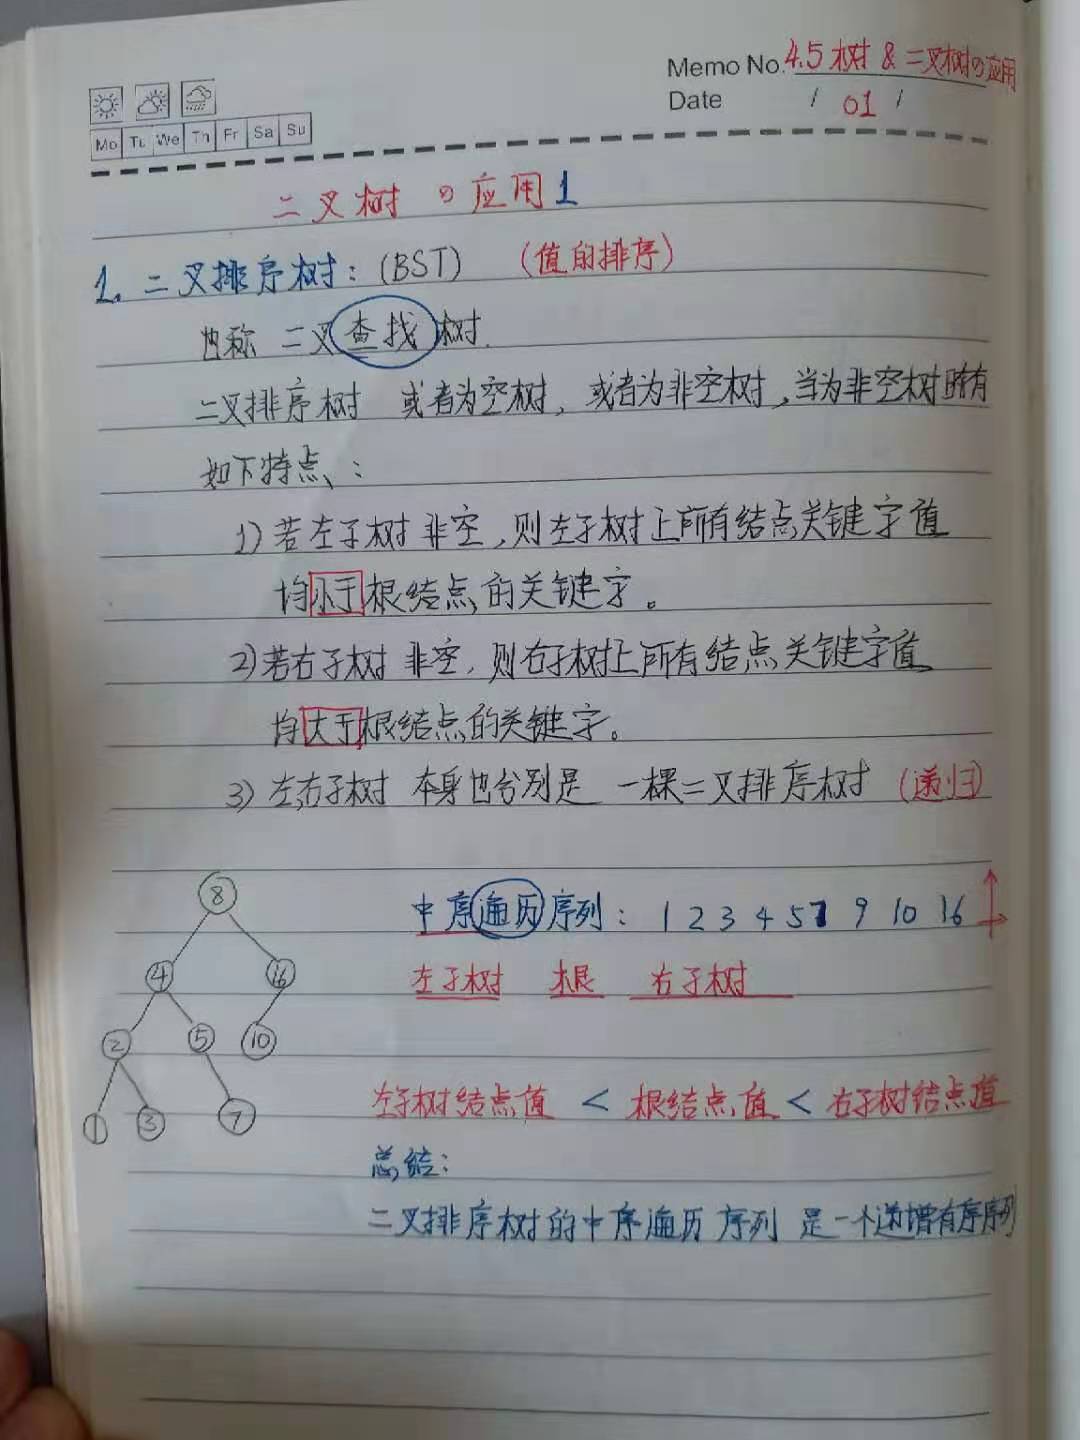 Memo No. 4.5 树 & 二叉树の应用
Date / 01 /
Mo Tu We Th Fr Sa Su
二叉树 の 应用1
1. 二叉排序树：(BST) （值的排序）
也称 二叉查找树.
二叉排序树 或者为空树，或者为非空树，当为非空树时有
如下特点：
1) 若左子树 非空，则左子树上所有结点关键字值
均小于根结点的关键字。
2) 若右子树 非空，则右子树上所有结点关键字值
均大于根结点的关键字。
3) 左,右子树 本身也分别是 一棵二叉排序树 （递归）
8
4 16
2 5 10
1 3 7
中序遍历序列： 1 2 3 4 5 7 9 10 16
左子树 根 右子树
左子树结点值 < 根结点值 < 右子树结点值
总结：
二叉排序树的中序遍历 序列 是一个递增有序序列